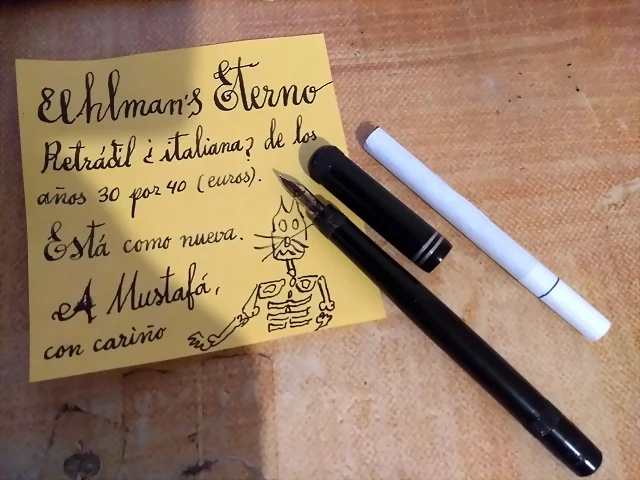 Uhlman's Eterno
Retráctil ¿italiana? de los
años 30 por 40 (euros).
Está como nueva.
A Mustafá,
con cariño